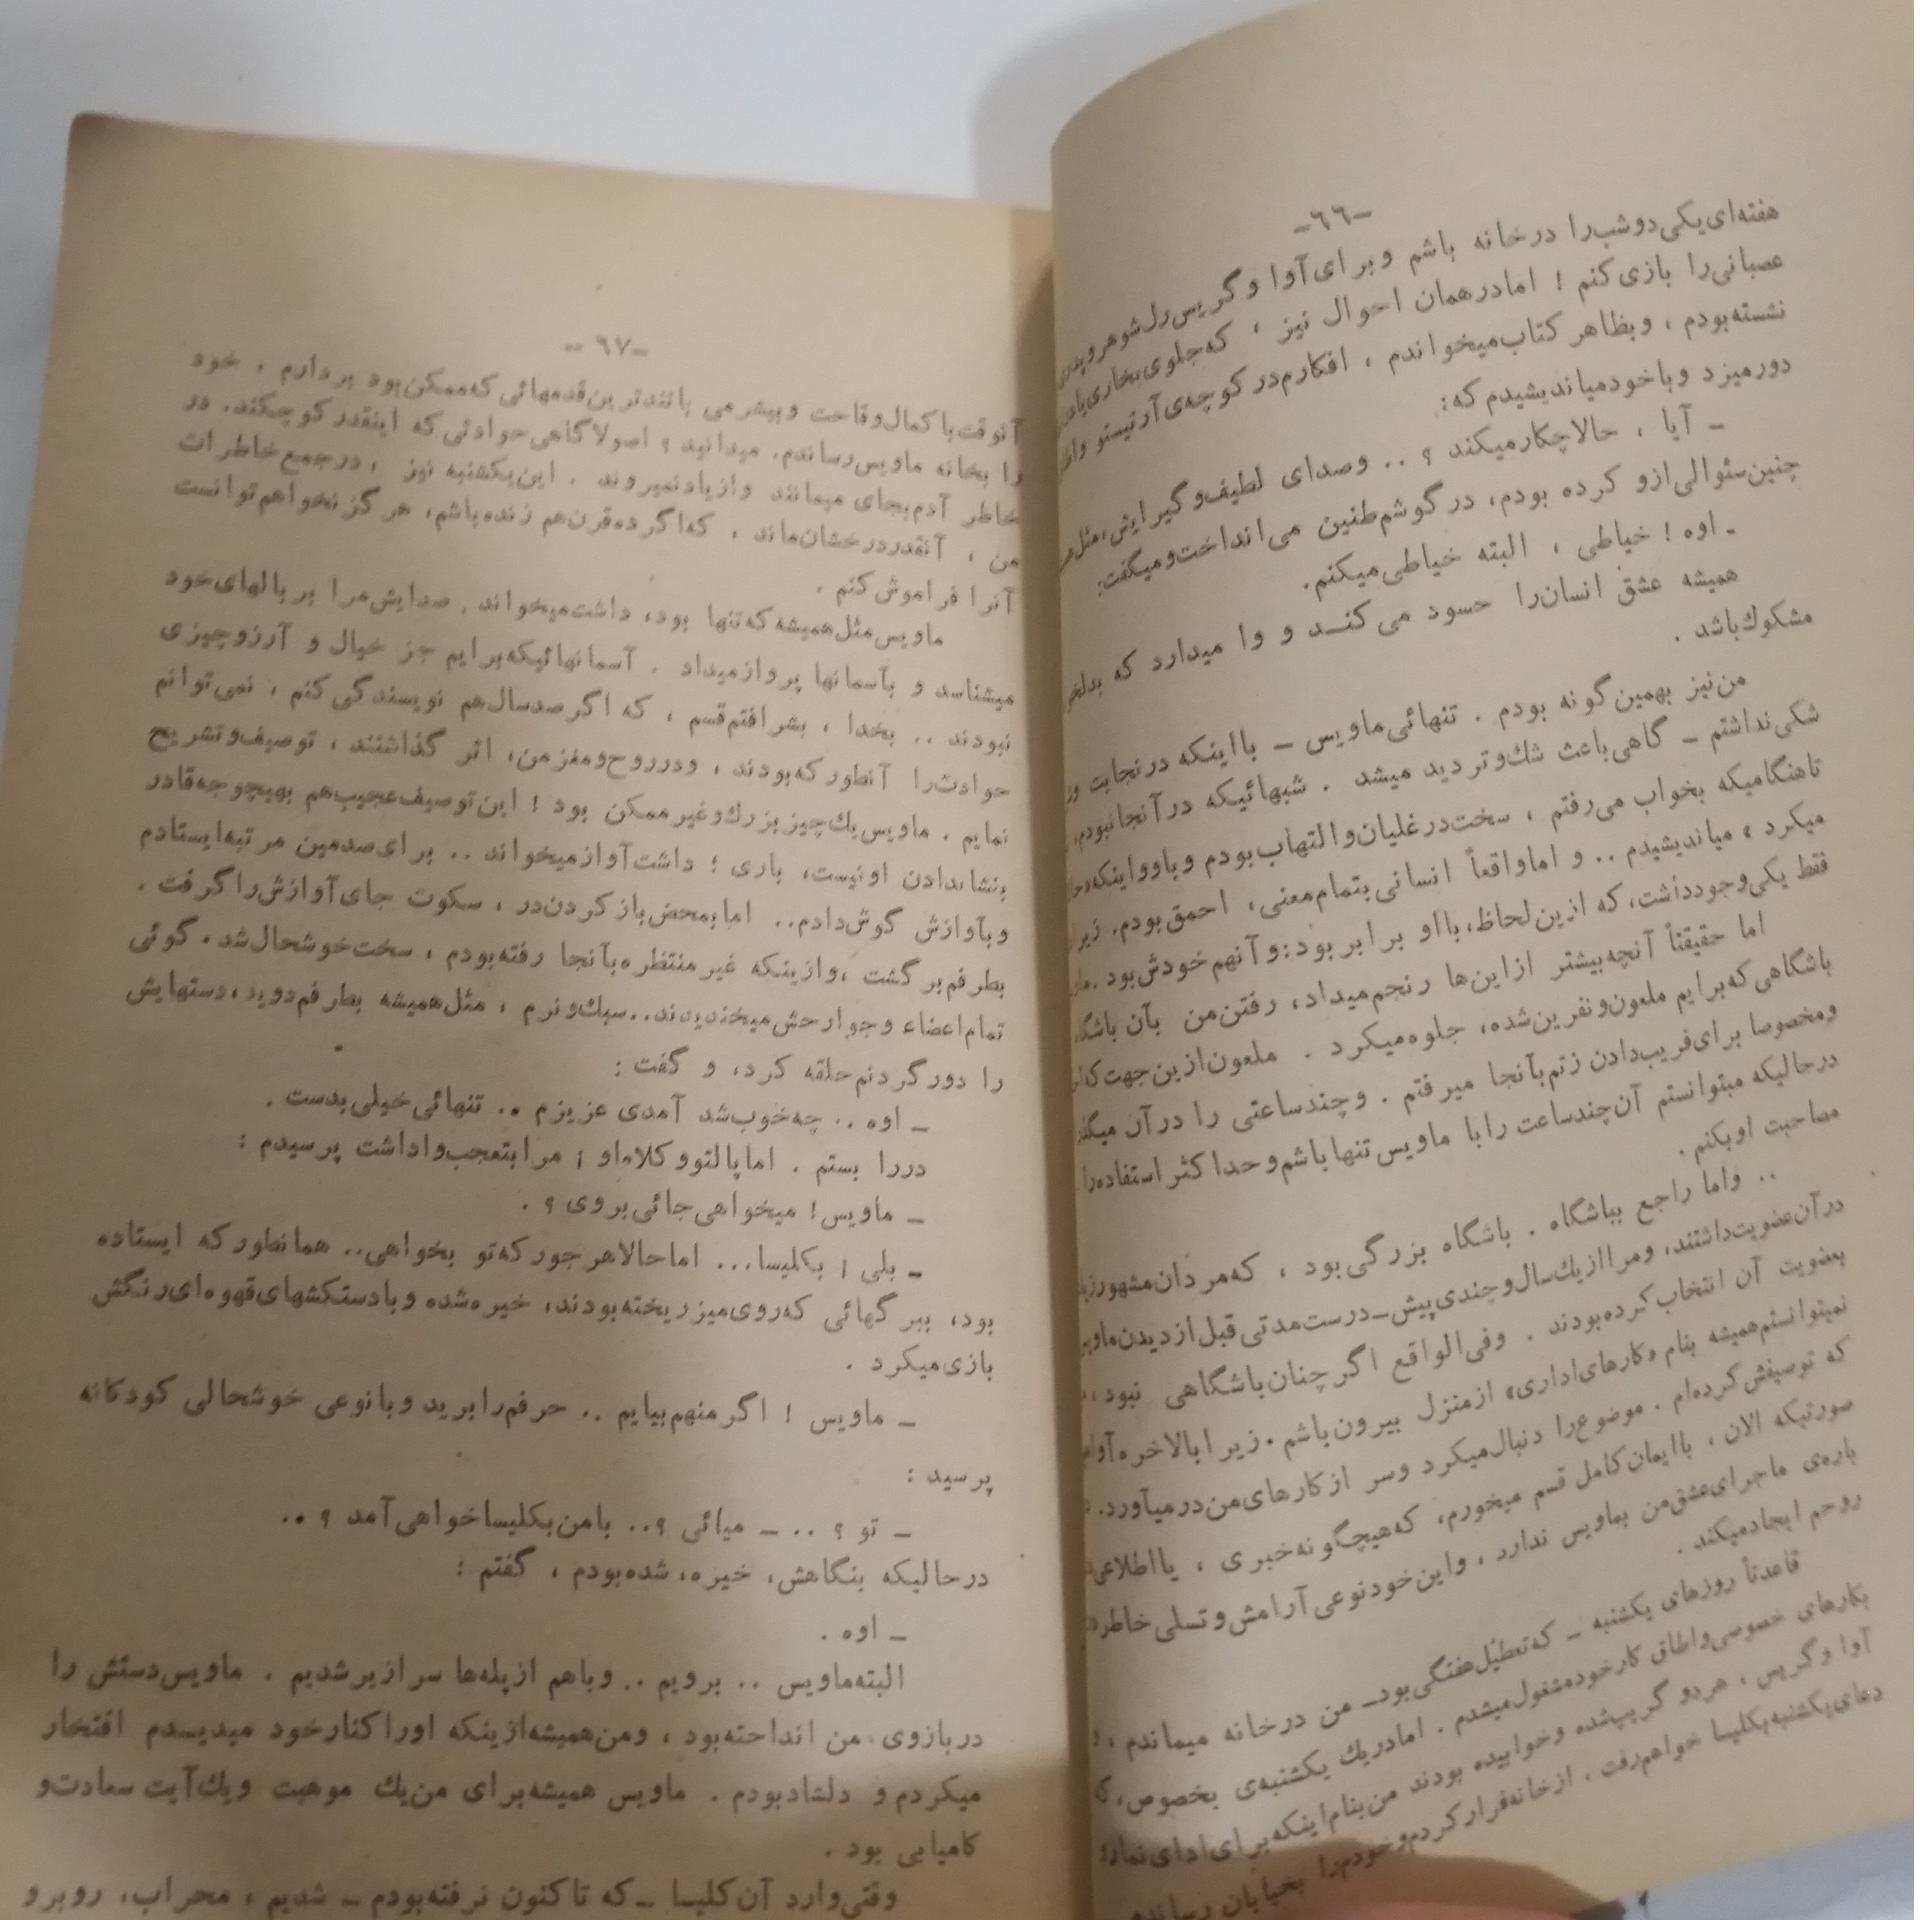 -٦٦-
هفته‌ای یکی دو شب را در خانه باشم و برای آوا و گریس رل شوهر و پدر
عصبانی را بازی کنم ! اما در همان احوال نیز ، که جلوی بخاری
نشسته بودم ، و بظاهر کتاب میخواندم ، افکارم در کوچه‌ی آرتیستو
دور میزد و با خود میاندیشیدم که:
ـ آیا ، حالا چکار میکند ؟ .. و صدای لطیف و گیرایش ، مثل
چنین سئوالی ازو کرده بودم، در گوشم طنین می انداخت و میگفت:
ـ اوه ! خیاطی ، البته خیاطی میکنم.
همیشه عشق انسان را حسود می کنـد و وا میدارد که
مشکوك باشد .
من نیز بهمین گونه بودم . تنهائی ماویس ـ با اینکه در نجابت
شکی نداشتم ـ گاهی باعث شك و تردید میشد . شبهائیکه در آنجا نبودم،
تا هنگامیکه بخواب می رفتم ، سخت در غلیان و التهاب بودم و باو و اینکه
میکرد ، میاندیشیدم .. و اما واقعاً انسانی بتمام معنی، احمق بودم. زیرا
فقط یکی وجود داشت، که ازین لحاظ، با او برابر بود: و آنهم خودش بود .
اما حقیقتاً آنچه بیشتر از این ها رنجم میداد، رفتن من بآن باشگاه
باشگاهی که برایم ملعون و نفرین شده، جلوه میکرد . ملعون ازین جهت که
و مخصوصا برای فریب دادن زنم بآنجا میرفتم . و چند ساعتی را در آن
در حالیکه میتوانستم آن چند ساعت را با ماویس تنها باشم و حداکثر استفاده را
مصاحبت او بکنم .
.. و اما راجع بباشگاه . باشگاه بزرگی بود ، که مردان مشهور
در آن عضویت داشتند، و مرا از یك سال و چندی پیش ـ درست مدتی قبل از دیدن
بعضویت آن انتخاب کرده بودند . و فی الواقع اگر چنان باشگاهی نبود ،
نمیتوانستم همیشه بنام «کارهای اداری» از منزل بیرون باشم . زیرا بالاخره آوا
که توصیفش کرده‌ام . موضوع را دنبال میکرد و سر از کارهای من در میآورد.
صورتیکه الان ، با ایمان کامل قسم میخورم، که هیچگونه خبری ، یا اطلاعی
باره‌ی ماجرای عشق من بماویس ندارد ، و این خود نوعی آرامش و تسلی خاطر
روحم ایجاد میکند .
قاعدتاً روزهای یکشنبه ـ که تعطیل هفتگی بود ـ من در خانه میماندم ،
بکارهای خصوصی و اطاق کار خود مشغول میشدم . اما در یك یکشنبه‌ی بخصوص ،
آوا و گریس ، هر دو گریپ شده و خوابیده بودند من بنام اینکه برای ادای نماز و
دعای یکشنبه بکلیسا خواهم رفت ، از خانه فرار کردم و خودم را بخیابان
-٦٧-
آنوقت با کمال وقاحت و بیشرمی با تندترین قدمهائی که ممکن بود بردارم ، خود
را بخانه ماویس رساندم. میدانید ؟ اصولا گاهی حوادثی که اینقدر کوچکند. در
خاطر آدم بجای میمانند و از یاد نمیروند . این یکشنبه نیز ، در جمع خاطرات
من ، آنقدر درخشان ماند ، که اگر ده قرن هم زنده باشم، هرگز نخواهم توانست
آنرا فراموش کنم .
ماویس مثل همیشه که تنها بود، داشت میخواند . صدایش مرا بر بالهای خود
میشناسد و بآسمانها پرواز میداد . آسمانهائیکه برایم جز خیال و آرزو چیزی
نبودند .. بخدا ، بشرافتم قسم ، که اگر صد سال هم نویسندگی کنم ، نمی توانم
حوادث را آنطور که بودند ، و در روح و مغز من، اثر گذاشتند ، توصیف و تشریح
نمایم . ماویس یك چیز بزرك و غیر ممکن بود ! این توصیف عجیب هم بهیچوجه قادر
بنشاندادن او نیست، باری ! داشت آواز میخواند .. برای صدمین مرتبه ایستادم
و بآوازش گوش دادم.. اما بمحض باز کردن در ، سکوت جای آوازش را گرفت .
بطرفم بر گشت ، و ازینکه غیر منتظره بآنجا رفته بودم ، سخت خوشحال شد . گوئی
تمام اعضاء و جوارحش میخندیدند.. سبك و نرم ، مثل همیشه بطرفم دوید، دستهایش
را دور گردنم حلقه کرد، و گفت :
ـ اوه .. چه خوب شد آمدی عزیزم .. تنهائی خیلی بدست .
در را بستم . اما پالتو و کلاه او ؛ مرا بتعجب واداشت پرسیدم :
ـ ماویس! میخواهی جائی بروی ؟ .
ـ بلی ؛ بکلیسا... اما حالا هر جور که تو بخواهی.. همانطور که ایستاده
بود، ببرگهائی که روی میز ریخته بودند، خیره شده و با دستکشهای قهوه‌ای رنگش
بازی میکرد .
ـ ماویس ! اگر منهم بیایم .. حرفم را برید و با نوعی خوشحالی کودکانه
پرسید :
ـ تو ؟ .. ـ میائی ؟.. با من بکلیسا خواهی آمد ؟ ..
در حالیکه بنگاهش، خیره، شده بودم ، گفتم :
ـ اوه .
البته ماویس .. برویم .. و باهم از پله‌ها سرازیر شدیم . ماویس دستش را
در بازوی من انداخته بود ، و من همیشه از ینکه او را کنار خود میدیدم افتخار
میکردم و دلشاد بودم . ماویس همیشه برای من یك موهبت و یك آیت سعادت و
کامیابی بود .
وقتی وارد آن کلیسا ـ که تا کنون نرفته بودم ـ شدیم ، محراب، روبرو